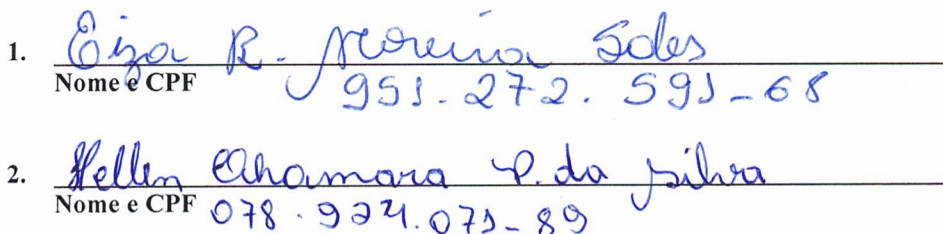 1. Eiza R. Moreira Sales
Nome e CPF 951.272.591-68
2. Hellen Thamara P. da Silva
Nome e CPF 078.924.071-89